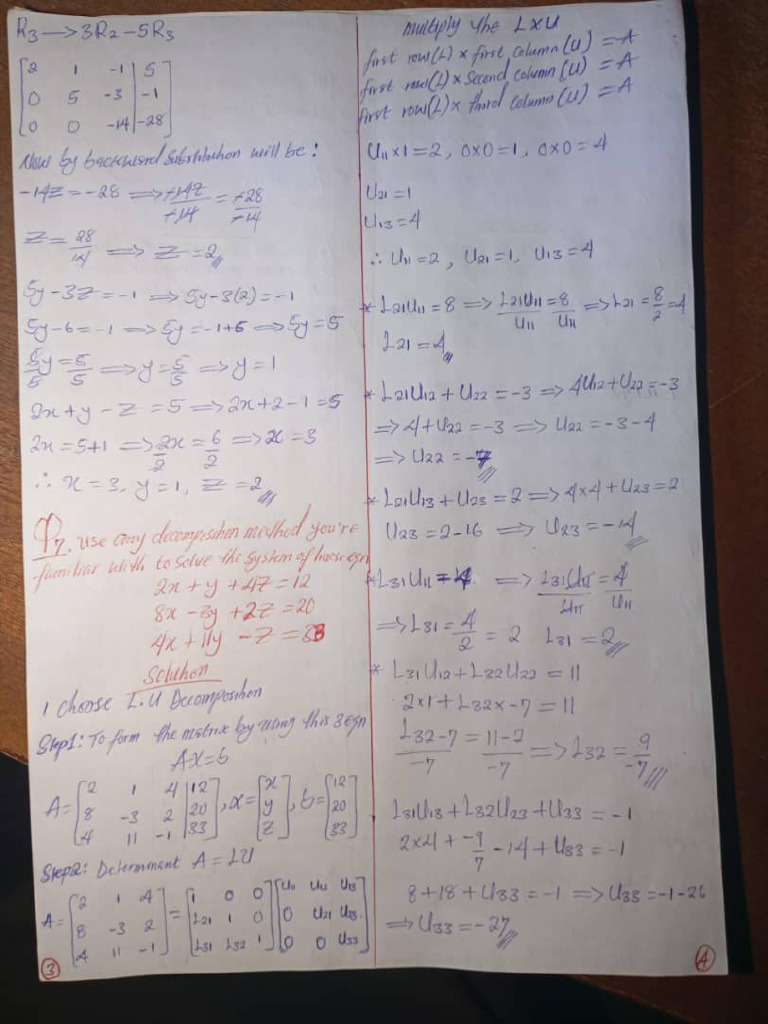 R3 → 3R2 - 5R3
[2 1 -1 | 5]
[0 5 -3 | -1]
[0 0 -14 | -28]
Now by backward substitution will be:
-14Z = -28 ⟹ -14Z/-14 = -28/-14
Z = 28/14 ⟹ Z = 2
5y - 3Z = -1 ⟹ 5y - 3(2) = -1
5y - 6 = -1 ⟹ 5y = -1 + 6 ⟹ 5y = 5
5y/5 = 5/5 ⟹ y = 5/5 ⟹ y = 1
2x + y - Z = 5 ⟹ 2x + 2 - 1 = 5
2x = 5 + 1 ⟹ 2x/2 = 6/2 ⟹ x = 3
∴ x = 3, y = 1, Z = 2
Q7. Use any decomposition method you're
familiar with to solve the system of linear eqn
2x + y + 4Z = 12
8x - 3y + 2Z = 20
4x + 11y - Z = 33
Solution
I choose L.U Decomposition
Step1: To form the matrix by using this 3 eqn
AX = b
A = [2 1 4 | 12], x = [x], b = [12]
[8 -3 2 | 20] [y] [20]
[4 11 -1 | 33] [z] [33]
Step2: Determinant A = LU
A = [2 1 4] = [1 0 0] [U11 U12 U13]
[8 -3 2] [L21 1 0] [0 U21 U13]
[4 11 -1] [L31 L32 1] [0 0 U33]
3
multiply the L x U
first row(L) x first column(U) = A
first row(L) x second column(U) = A
first row(L) x third column(U) = A
U11 x 1 = 2, 0x0 = 1, 0x0 = 4
U21 = 1
U13 = 4
∴ U11 = 2, U21 = 1, U13 = 4
* L21U11 = 8 ⟹ L21U11/U11 = 8/U11 ⟹ L21 = 8/2 = 4
L21 = 4
* L21U12 + U22 = -3 ⟹ 4U12 + U22 = -3
⟹ 4 + U22 = -3 ⟹ U22 = -3 - 4
⟹ U22 = -7
* L21U13 + U23 = 2 ⟹ 4x4 + U23 = 2
U23 = 2 - 16 ⟹ U23 = -14
* L31U11 = 4 ⟹ L31U11/U11 = 4/U11
⟹ L31 = 4/2 = 2 L31 = 2
* L31U12 + L32U22 = 11
2x1 + L32x-7 = 11
L32-7/-7 = 11-2/-7 ⟹ L32 = 9/-7
L31U13 + L32U23 + U33 = -1
2x4 + -9/7 -14 + U33 = -1
8 + 18 + U33 = -1 ⟹ U33 = -1 - 26
⟹ U33 = -27
4